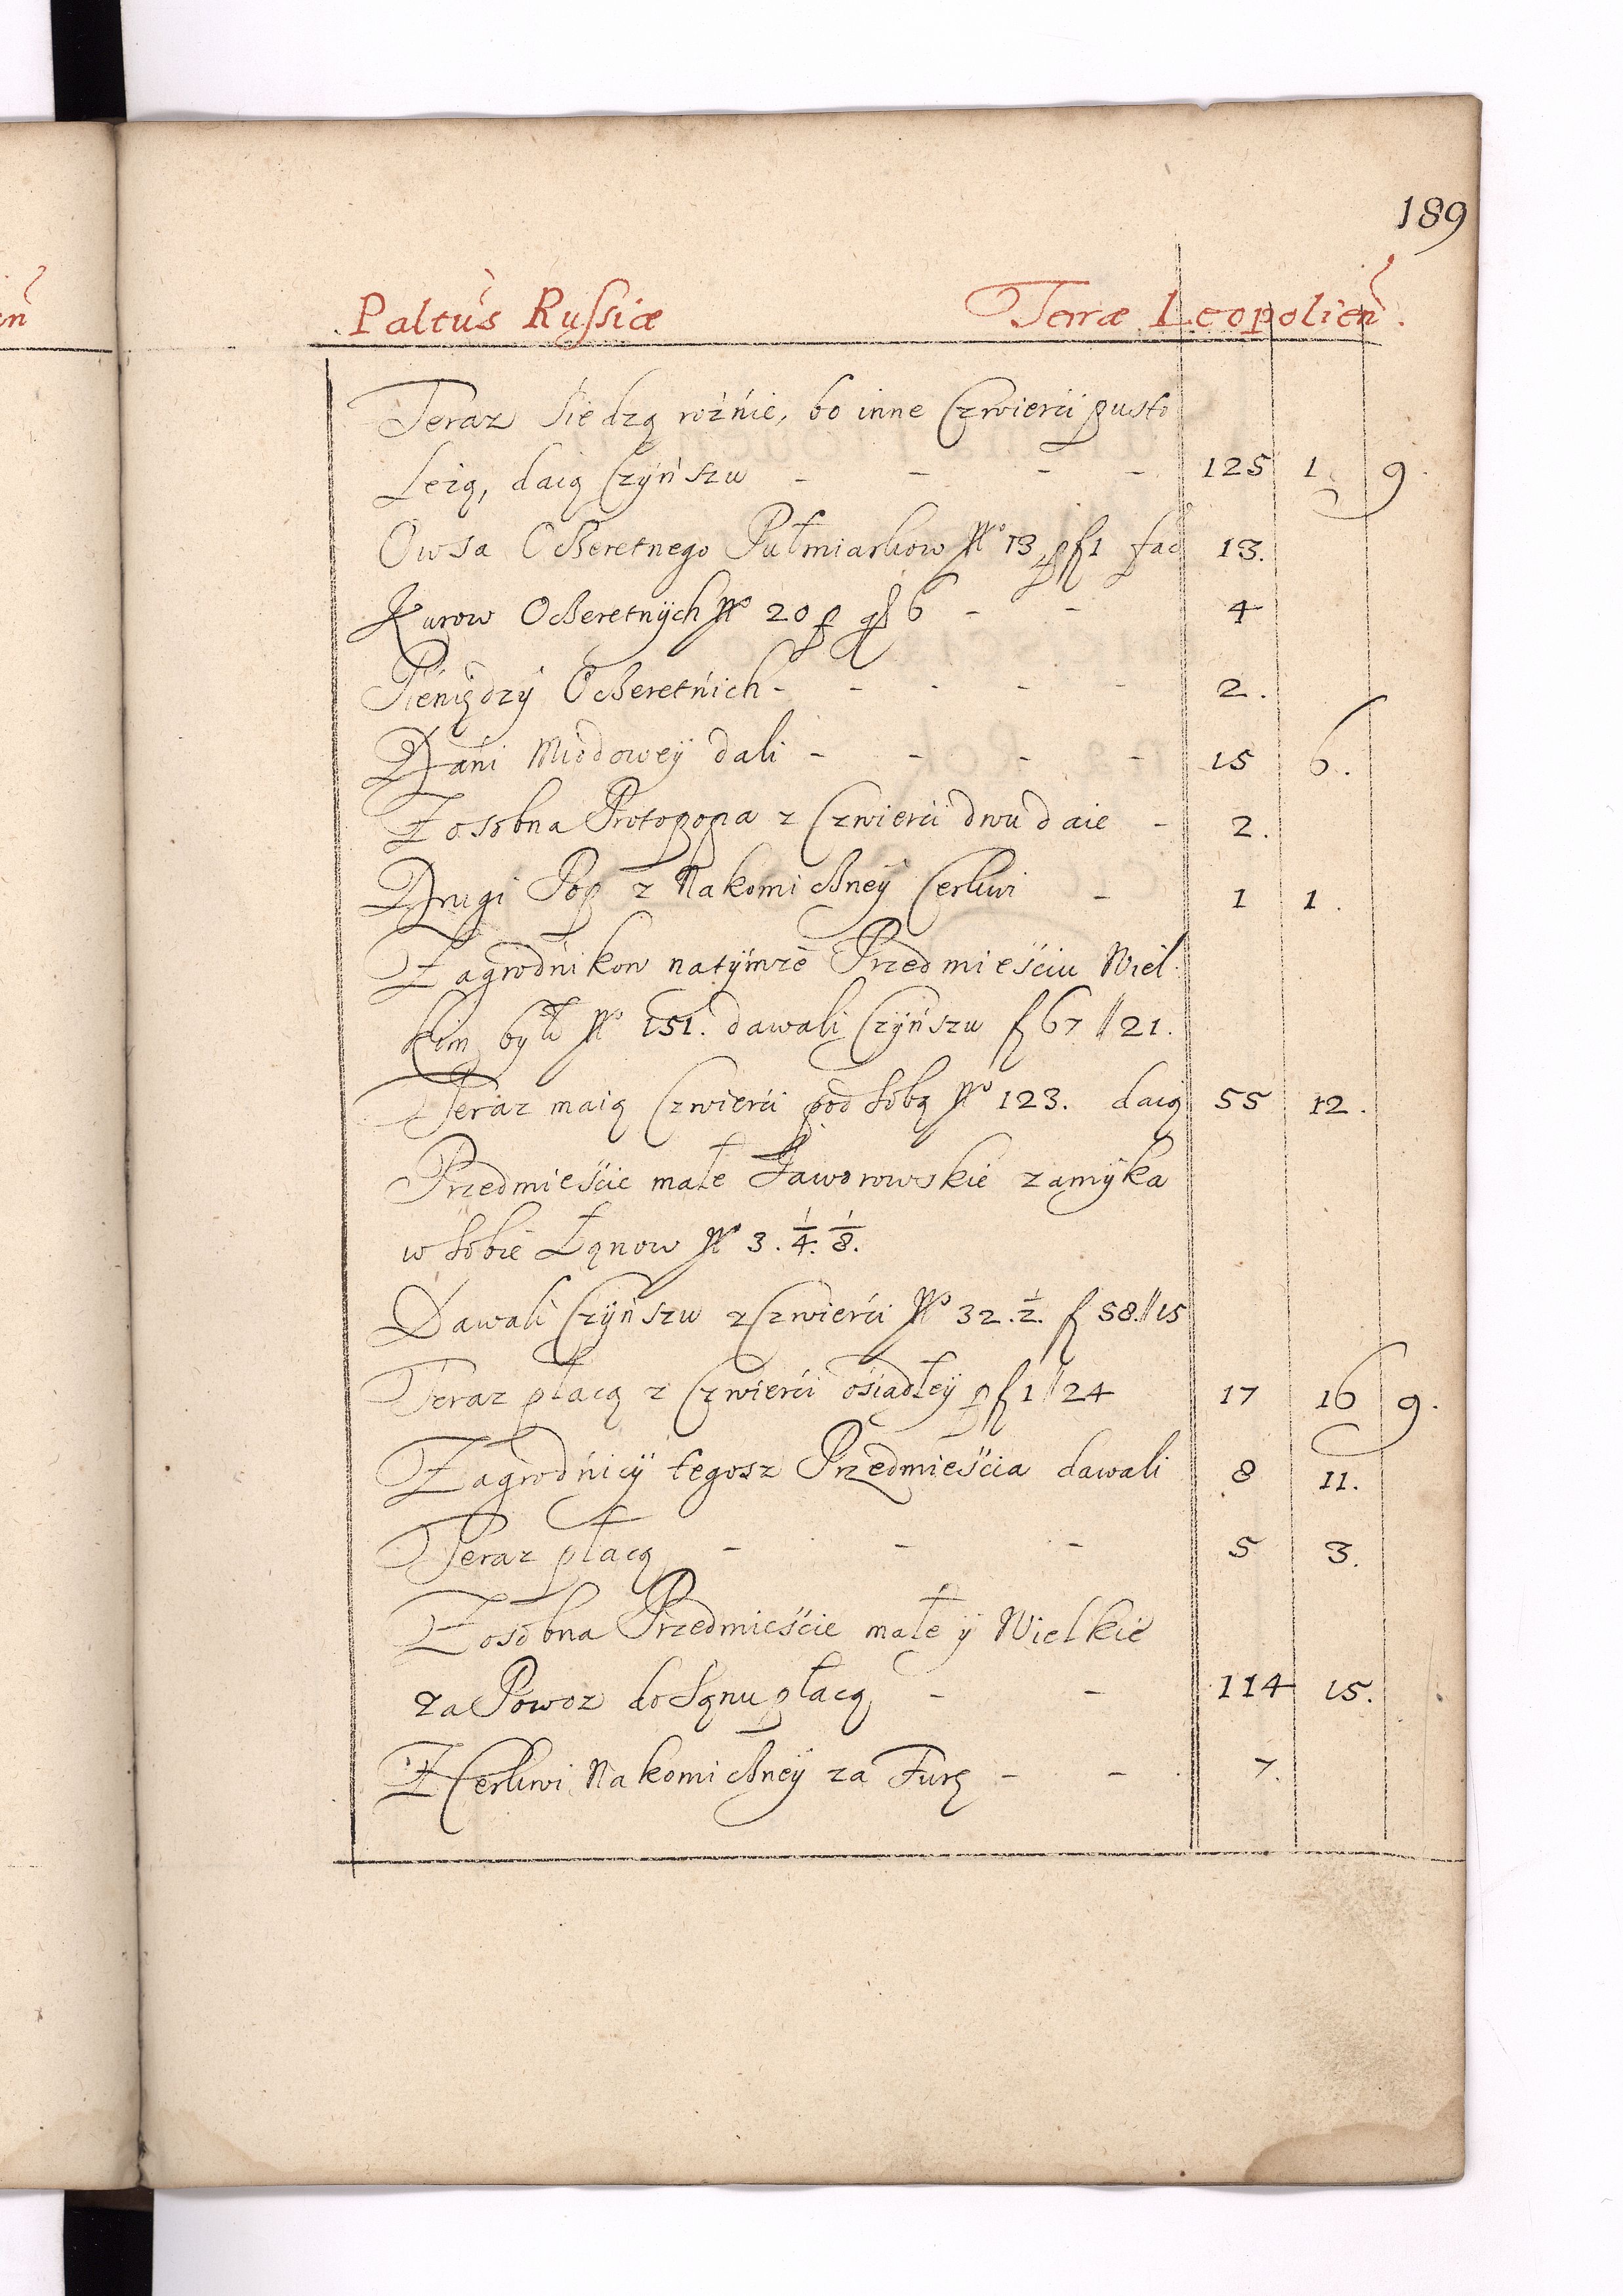 189
Paltus Russiæ Terræ Leopolien.
Teraz siedzą rożnie, bo inne Czwierci pusto
Leżą, daią Czÿńszu - - - - 125 1. 9.
Owsa Ocheretnego Pułmiarkow No 13 p f 1 fac 13.
Kurow Ocheretnÿch No 20 p gl 6 - - 4
Pieniędzÿ Ocheretnich - - - - - 2.
Dani Miodoweÿ dali - - - - 15 6.
Z osobna Protopopa z Czwierci dwu daie - 2.
Drugi Pop z Nakomichneÿ Cerkwi - 1 1.
Zagrodnikow natÿmże Przedmieściu Wiel
kim było No 151. dawali Czÿńszu f 67 // 21.
Teraz maią Czwierci pod sobą No 123. daią 55 12.
Przedmieście małe Jaworowskie zamÿka
w sobie Łanow No 3. 1/4. 1/8.
Dawali Czÿńszu z Czwierci No 32. 1/2. f 58. // 15
Teraz płacą z Czwierci osiadłeÿ p f 1 // 24 17 16 9.
Zagrodnicÿ tegosz Przedmieścia dawali 8 11.
Teraz płacą - - - 5 3.
Z osobna Przedmieście małe ÿ Wielkie
za Powoz do Sąnu płacą - - 114 15.
Z Cerkwi Nakomichneÿ za Furę - - 7.